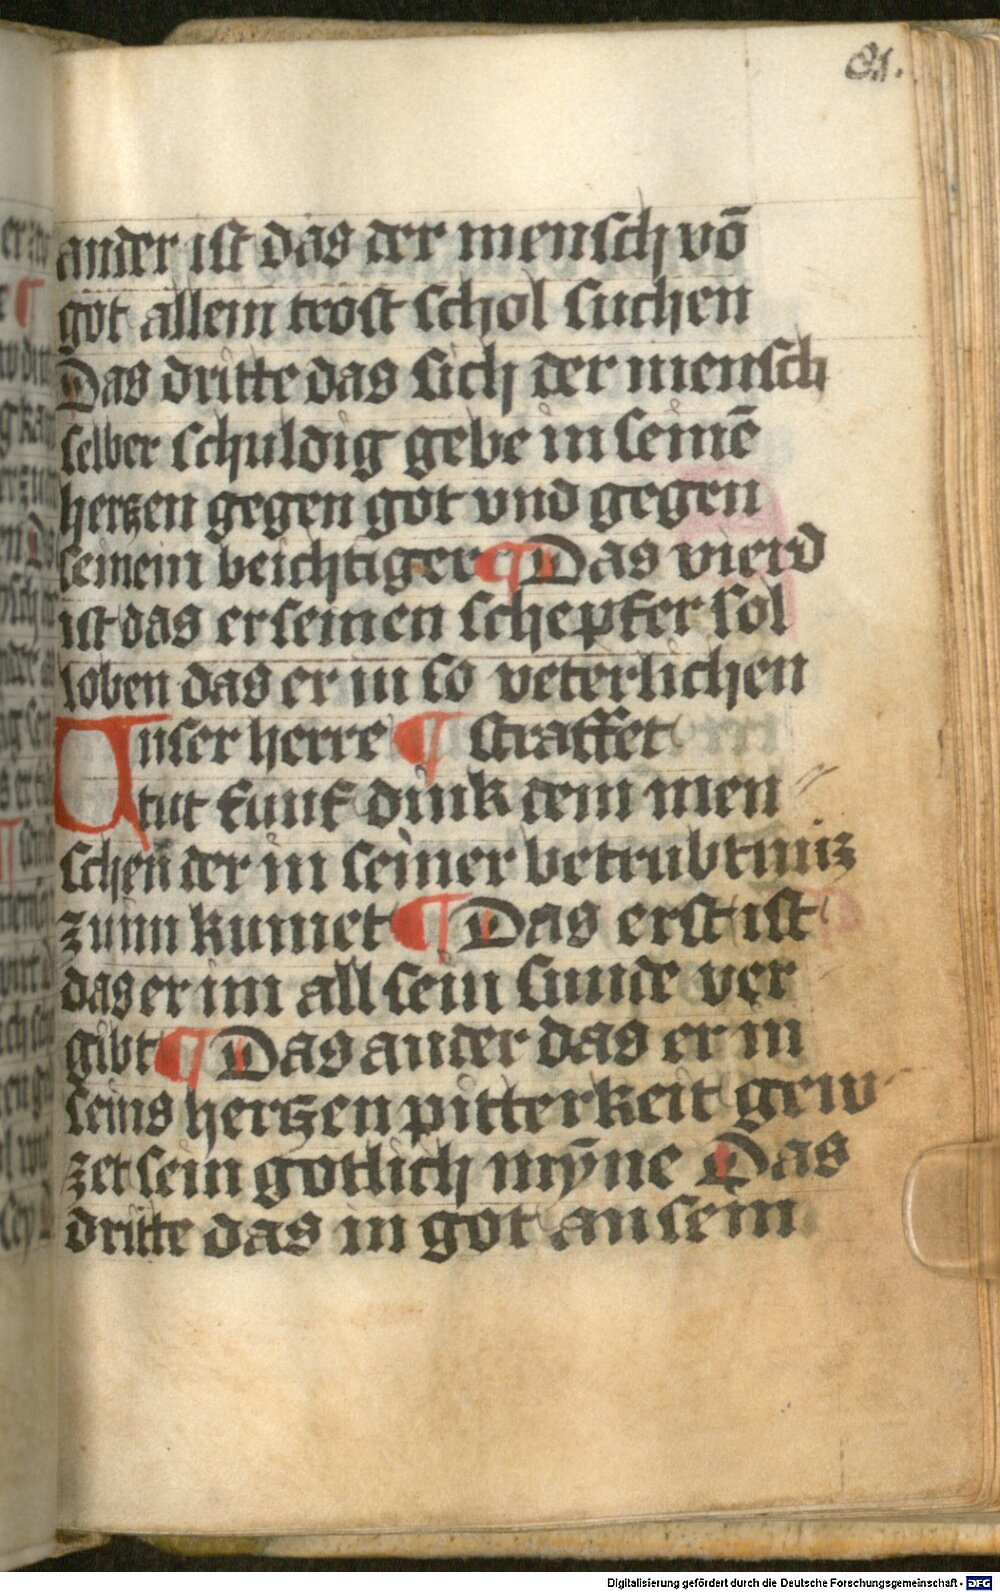 91.
ander ist das der mensch vō
got allein trost schol suchen
Das dritte das sich der mensch
selber schuldig gebe in seinē
hertzen gegen got vnd gegen
seinem beichtiger ¶ Das vierd
ist das er seinen schepfer sol
loben das er in so veterlichen
Unser herre ¶ straffet
tut funf dink dem men
schen der in seiner betrubtnüz
zuim kumet ¶ Das erst ist
das er im all sein sunde ver
gibt ¶ Das ander das er in
seins hertzen pitterkeit gew
zet sein gotlich mȳne Das
dritte das in got an sein
Digitalisierung gefördert durch die Deutsche Forschungsgemeinschaft - DFG